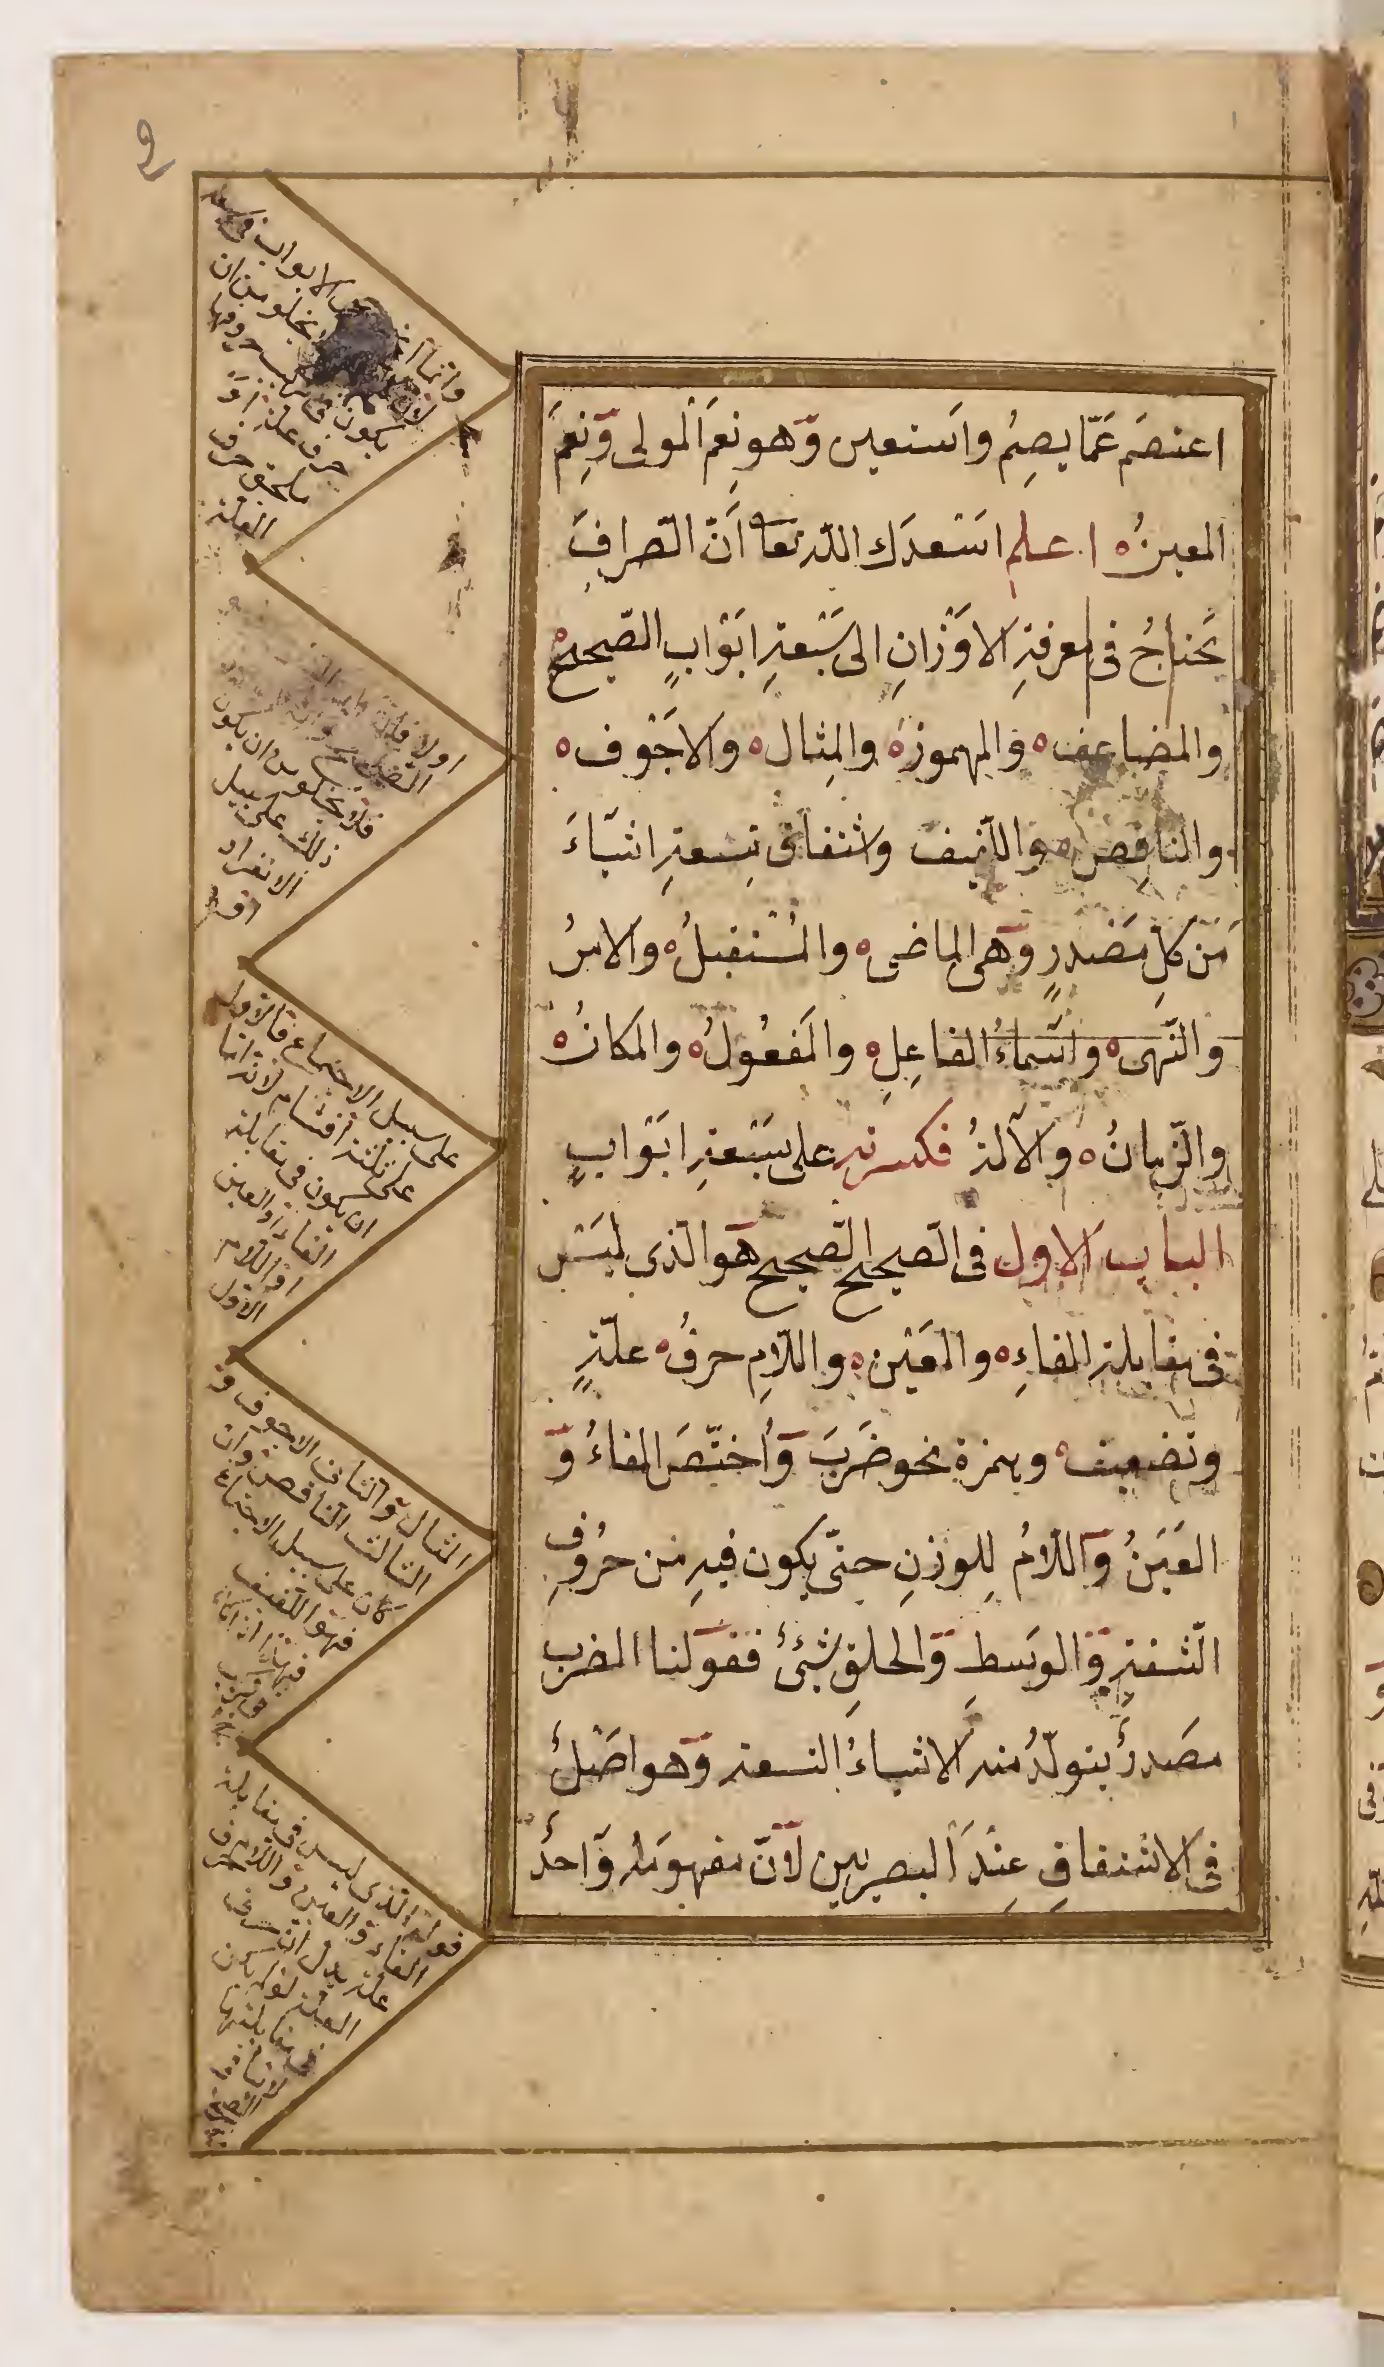 اعتصم عَمّا يصِمُ واَستعين وَهو نِعمَ اَلمولى وَنِعمَ
المعينُ اعلم اسَعدَك اللّٰه تعاٰ اَنّ الصّرافَ
يَحتاجُ فى معرفةِ الاوَزانِ الى سَبَعةِ ابَوابٍ الصّحيحِ
والمضاعف والمهموزِ والمِثالِ والاجَوف
والناقِص واللّفيف واشتقاق تِسعةِ اشيَاءَ
مَن كلّ مَصَدرٍ وَهى الماضى والمُستقبلُ والامرُ
والنّهى واسَماءُ الفاعِلِ والمَفعُولُ والمكانُ
والزّمانُ والآلةُ فكسرته على سَبَعةِ ابَوابٍ
الباب الاول فى الصّحيح الصّحيح هَو الّذى ليَس
فى مقابلة الفاءِ والعَين واللّامِ حرفُ علّةٍ
وتضعيف وهمزة نحو ضَرَبَ وَاُختّصَ الفاءُ وَ
العَينُ وَاللّامُ لِلوزنِ حتّى يكون فيهِ من حرُوفِ
الشّفةِ وَالوسَطِ وَالحلقِ شيئٌ فقوَلنا الضرب
مصَدرٌ يتولّدُ منه الاشياءُ التسعة وَهو اصَلٌ
فى الاشتقاقِ عِنَد اَلبصريين لاَنّ مفهومَه وَاحدٌ
يخلو من ان
حرف علة اوَ
ملحق حرف
العلة
فلا يخلو من ان يكون
ذلك على سبيل
الانفراد
او
على سبيل الاجتماع فالاول
على ثلثة اقسام لانه اما
ان يكون فى مقابلة
الفاء او العين
او اللام
الاول
المثال والثانى الاجوف و
الثالث الناقص وان
كان على سبيل الاجتماع
فهو اللفيف
قوله الذى ليس فى مقابلة
الفاء والعين واللام حرف
علة يدل ان حرف
العلة لو لم يكن
فى مقابلتها